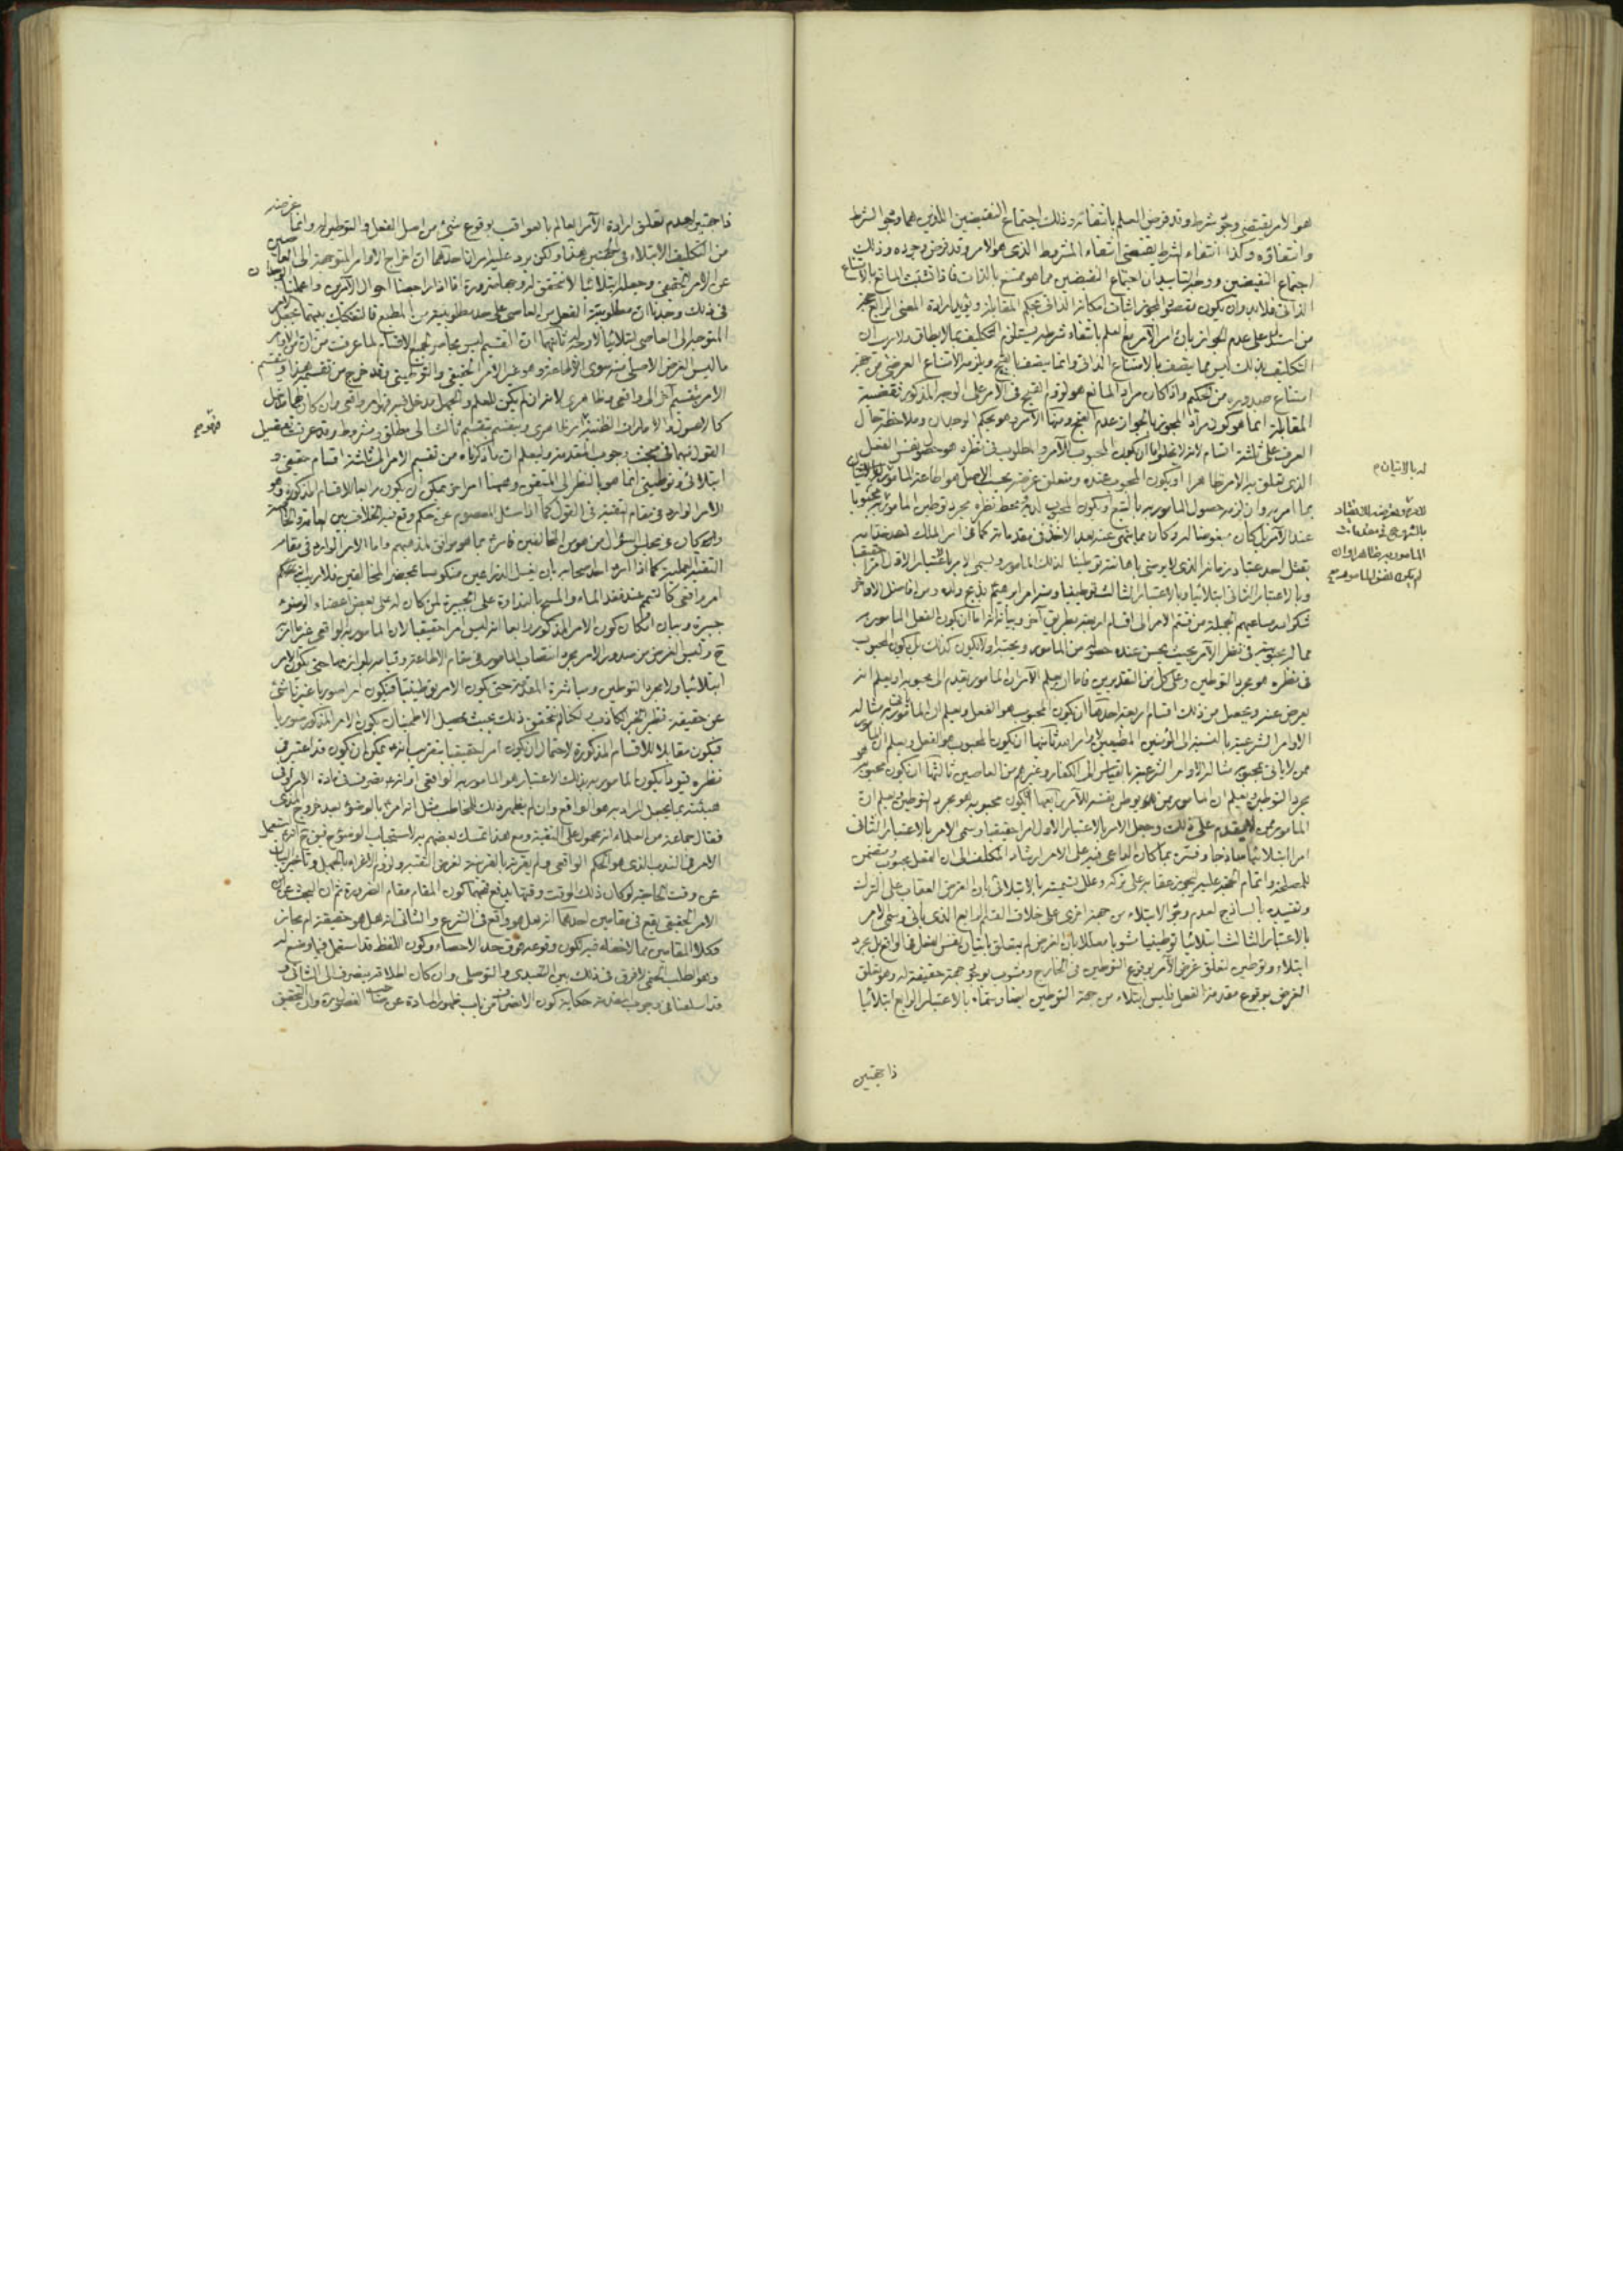 هو الامر يقتضى وجود شرطه وقد فرض العلم بانتفائه وذلك اجتماع النقيضين اللذين هما وجود الشرط
وانتفاؤه وكذا انتفاء الشرط يقتضى انتفاء المشروط الذى هو الامر وقد فرض وجوده وذلك
اجتماع النقيضين ووجه التاييد ان اجتماع النقيضين مما هو ممتنع بالذات فاذا تشبث المانع بالامتناع
الذاتى فلا بد وان يكون مقصود المجوز اثبات امكانه الذاتى بحكم المقابلة ويؤيد ارادة المعنى الرابع
من استدل على عدم الجواز بان امر الآمر مع العلم بانتفاء شرطه يستلزم التكليف بما لا يطاق ولا ريب ان
التكليف بذلك ليس مما يتصف بالامتناع الذاتى وانما يتصف بالقبح ويلزمه الامتناع العرضى من جهة
امتناع صدوره من الحكيم واذا كان مراد المانع هو لزوم القبح فى الامر على الوجه المذكور فقضية
المقابلة انما هو كون مراد المجوز بالجواز عدم القبح ومنها الآمر هو بحكم الوجدان وملاحظة حال
العرف على ثلثة اقسام لانه لا يخلو اما ان يكون المحبوب للآمر والمطلوب فى نظره هو حصول نفس الفعل
الذى تعلق به الامر ظاهرا او يكون المحبوب عنده ومتعلق غرضه بحسب الاصل هو اطاعة المامور
بما امر به وان لزمه حصول المامور به بالتبع او يكون المحبوب لديه ومحط نظره مجرد توطين المامور
عند الآمر بل كان مبغوضا له وكان مما ينهى عنه بعد الاخذ فى مقدماته كما فى امر الملك احد خدامه
بقتل احد عباده زمانه الذى لا يرضى باهانته توطينا لذلك المامور ويسمى الامر بالاعتبار الاول امرا حقيقيا
وبالاعتبار الثانى ابتلائيا وبالاعتبار الثالث توطينيا ومنه امر ابرهيم بذبح ولده ومن افاضل الاواخر
شكر الله مساعيهم الجميلة من قسم الامر الى اقسام اربعة بطريق آخر وبيانه انه اما ان يكون الفعل المامور به
مما له محبوبية فى نظر الآمر بحيث يحسن عنده حصوله من المامور ويحبه او لا يكون كذلك بل يكون المحبوب
فى نظره هو مجرد التوطين وعلى كل من التقديرين فاما ان يعلم الآمر ان المامور يقدم الى محبوبه او يعلم انه
يعرض عنه ويحصل من ذلك اقسام اربعة احدها ان يكون المحبوب هو الفعل ويعلم ان المامور ياتى به مثاله
الاوامر الشرعية بالنسبة الى المؤمنين المطيعين لاوامر الله ثانيها ان يكون المحبوب هو الفعل ويعلم ان المامور
ممن لا ياتى بمحبوبه مثاله الاوامر الشرعية بالقياس الى الكفار وغيرهم من العاصين ثالثها ان يكون محبوبه هو
مجرد التوطين ويعلم ان المامور ممن يوطن نفسه للآمر رابعها ان يكون محبوبه هو مجرد التوطين ويعلم ان
المامور ممن لا يقدم على ذلك وجعل الامر بالاعتبار الاول امرا حقيقيا وسمى الامر بالاعتبار الثانى
امرا ابتلائيا ساذجا وفسره بما كان الداعى فيه على الامر ارشاد المكلف الى ان الفعل محبوب ومتضمن
للمصلحة واتمام الحجة عليه ليجوز عقابه على تركه وعلل تسميته بالابتلائى بان الغرض العقاب على الترك
وتقييده بالساذج لعدم وجود الابتلاء من جهة اخرى على خلاف القسم الرابع الذى ياتى وسمى الامر
بالاعتبار الثالث ابتلائيا توطينيا مشوبا معللا بان الغرض لم يتعلق باتيان نفس الفعل فى الواقع بل مجرد
ابتلاء وتوطين لتعلق غرض الآمر بوقوع التوطين فى الخارج ومشوب بوجود جهة حقيقة له وهو تعلق
الغرض بوقوع مقدمة الفعل فليس ابتلاء من جهة التوطين ايضا وسماه بالاعتبار الرابع ابتلائيا
ذا جهتين
له بالاتيان م
بالشروع فى مقدمات
المامور به ظاهرا وان
لم يكن نفس المامور به
ذا جهتين لعدم تعلق ارادة الآمر العالم بالعواقب بوقوع شئ من اصل الفعل والتوطين له وانما غرضه
من التكليف الابتلاء فى الجهتين هذا ولكن يرد عليه امران احدهما ان اخراج الاوامر المتوجهة الى العاصين
عن الامر الحقيقى وجعله ابتلائيا لا نتحقق له وجها ضرورة انا اذا راجعنا احوال الآمرين واعملنا الوجدان
فى ذلك وجدنا ان مطلوبية الفعل من العاصى على حد مطلوبيته من المطيع فالتفكيك بينهما بجعل الامر
المتوجه الى العاصى ابتلائيا لا وجه له ثانيهما ان التقسيم ليس بحاصر لجميع الاقسام لما عرفت من ان من الاوامر
ما ليس الغرض الاصلى منه سوى الاطاعة وهو غير الامر الحقيقى والتوطينى وقد خرج من تقسيمه هذا وينقسم
الامر بتقسيم آخر الى واقعى وظاهرى لانه ان لم يكن للعلم والجهل مدخلية فيه فهو امر واقعى وان كان
كالاصول والامارات الظنية فهو ظاهرى وينقسم بتقسيم ثالث الى مطلق ومشروط وقد عرفت تفصيل
القول فيهما فى مبحث وجوب المقدمة وليعلم ان ما ذكرناه من تقسيم الامر الى ثلثة اقسام حقيقى و
ابتلائى وتوطينى انما هو بالنظر الى المتفق وههنا امر يمكن ان يكون رابعا للاقسام المذكورة وهو
الامر الوارد فى مقام التقية فى القول كما اذا سئل المعصوم عن حكم وقع فيه الخلاف بين العامة والخاصة
وكان فى مجلس السؤال من هو من المخالفين فامره بما هو موافق لمذهبهم واما الامر الوارد فى مقام
التقية العملية كما اذا امره احد صحابه بان يغسل الذراعين منكوسا بمحضر المخالفين فلا ريب انه حكم
امر واقعى كالتيمم عند فقد الماء والمسح بالنداوة على الجبيرة لمن كان له على بعض اعضاء الوضوء
جبيرة وبيان امكان كون الامر المذكور رابعا انه ليس امرا حقيقيا لان المامور به الواقعى غيره
وليس الغرض من صدور الامر مجرد انتصاب المامور فى مقام الاطاعة وقيامه بلوازمها حتى يكون الامر
ابتلائيا ولا مجرد التوطين ومباشرة المقدمة حتى يكون الامر توطينيا فيكون امرا صوريا غير ناشئ
عن حقيقة نظير الخبر الكاذب لكنا لم نتحقق ذلك بحيث يحصل الاطمينان بكون الامر المذكور صوريا
فيكون مقابلا للاقسام المذكورة لاحتمال ان يكون امرا حقيقيا بتقريب انه يمكن ان يكون قد اعتبر فى
نظره قيودا يكون المامور به بذلك الاعتبار هو المامور به الواقعى او انه يتصرف فى مادة الامر او فى
هيئته بما يجعل المراد به هو الواقع وان لم يظهر ذلك للمخاطب مثل انه امره بالوضوء بعد خروج المذى
فقال جماعة من العلماء انه محمول على التقية ومع هذا تمسك بعضهم به لاستحباب الوضوء
الامر فى الندب الذى هو الحكم الواقعى ولم يقرنه بالقرينة لغرض التقية ولزوم الاغراء بالجهل وتاخير البيان
عن وقت الحاجة لو كان ذلك الوقت وقتها يدفع قبحهما كون المقام مقام الضرورة ثم ان البحث عن
الامر الحقيقى يقع فى مقامين احدهما انه هل هو واقع فى الشرع والثانى انه هل هو حقيقة ام مجاز
وكلا المقامين مما لا خفاء فيه لكون وقوعه فوق حد الاحصاء وكون اللفظ قد استعمل فيما وضع له
وهو الطلب الحتمى لا فرق فى ذلك بين التعبدى والتوصلى وان كان اطلاقه ينصرف الى الثانى و
قد اسلفنا فى وجوب المقدمة حكاية كون الانصراف من باب ظهور المادة عن صاحب الفصول وان التحقيق